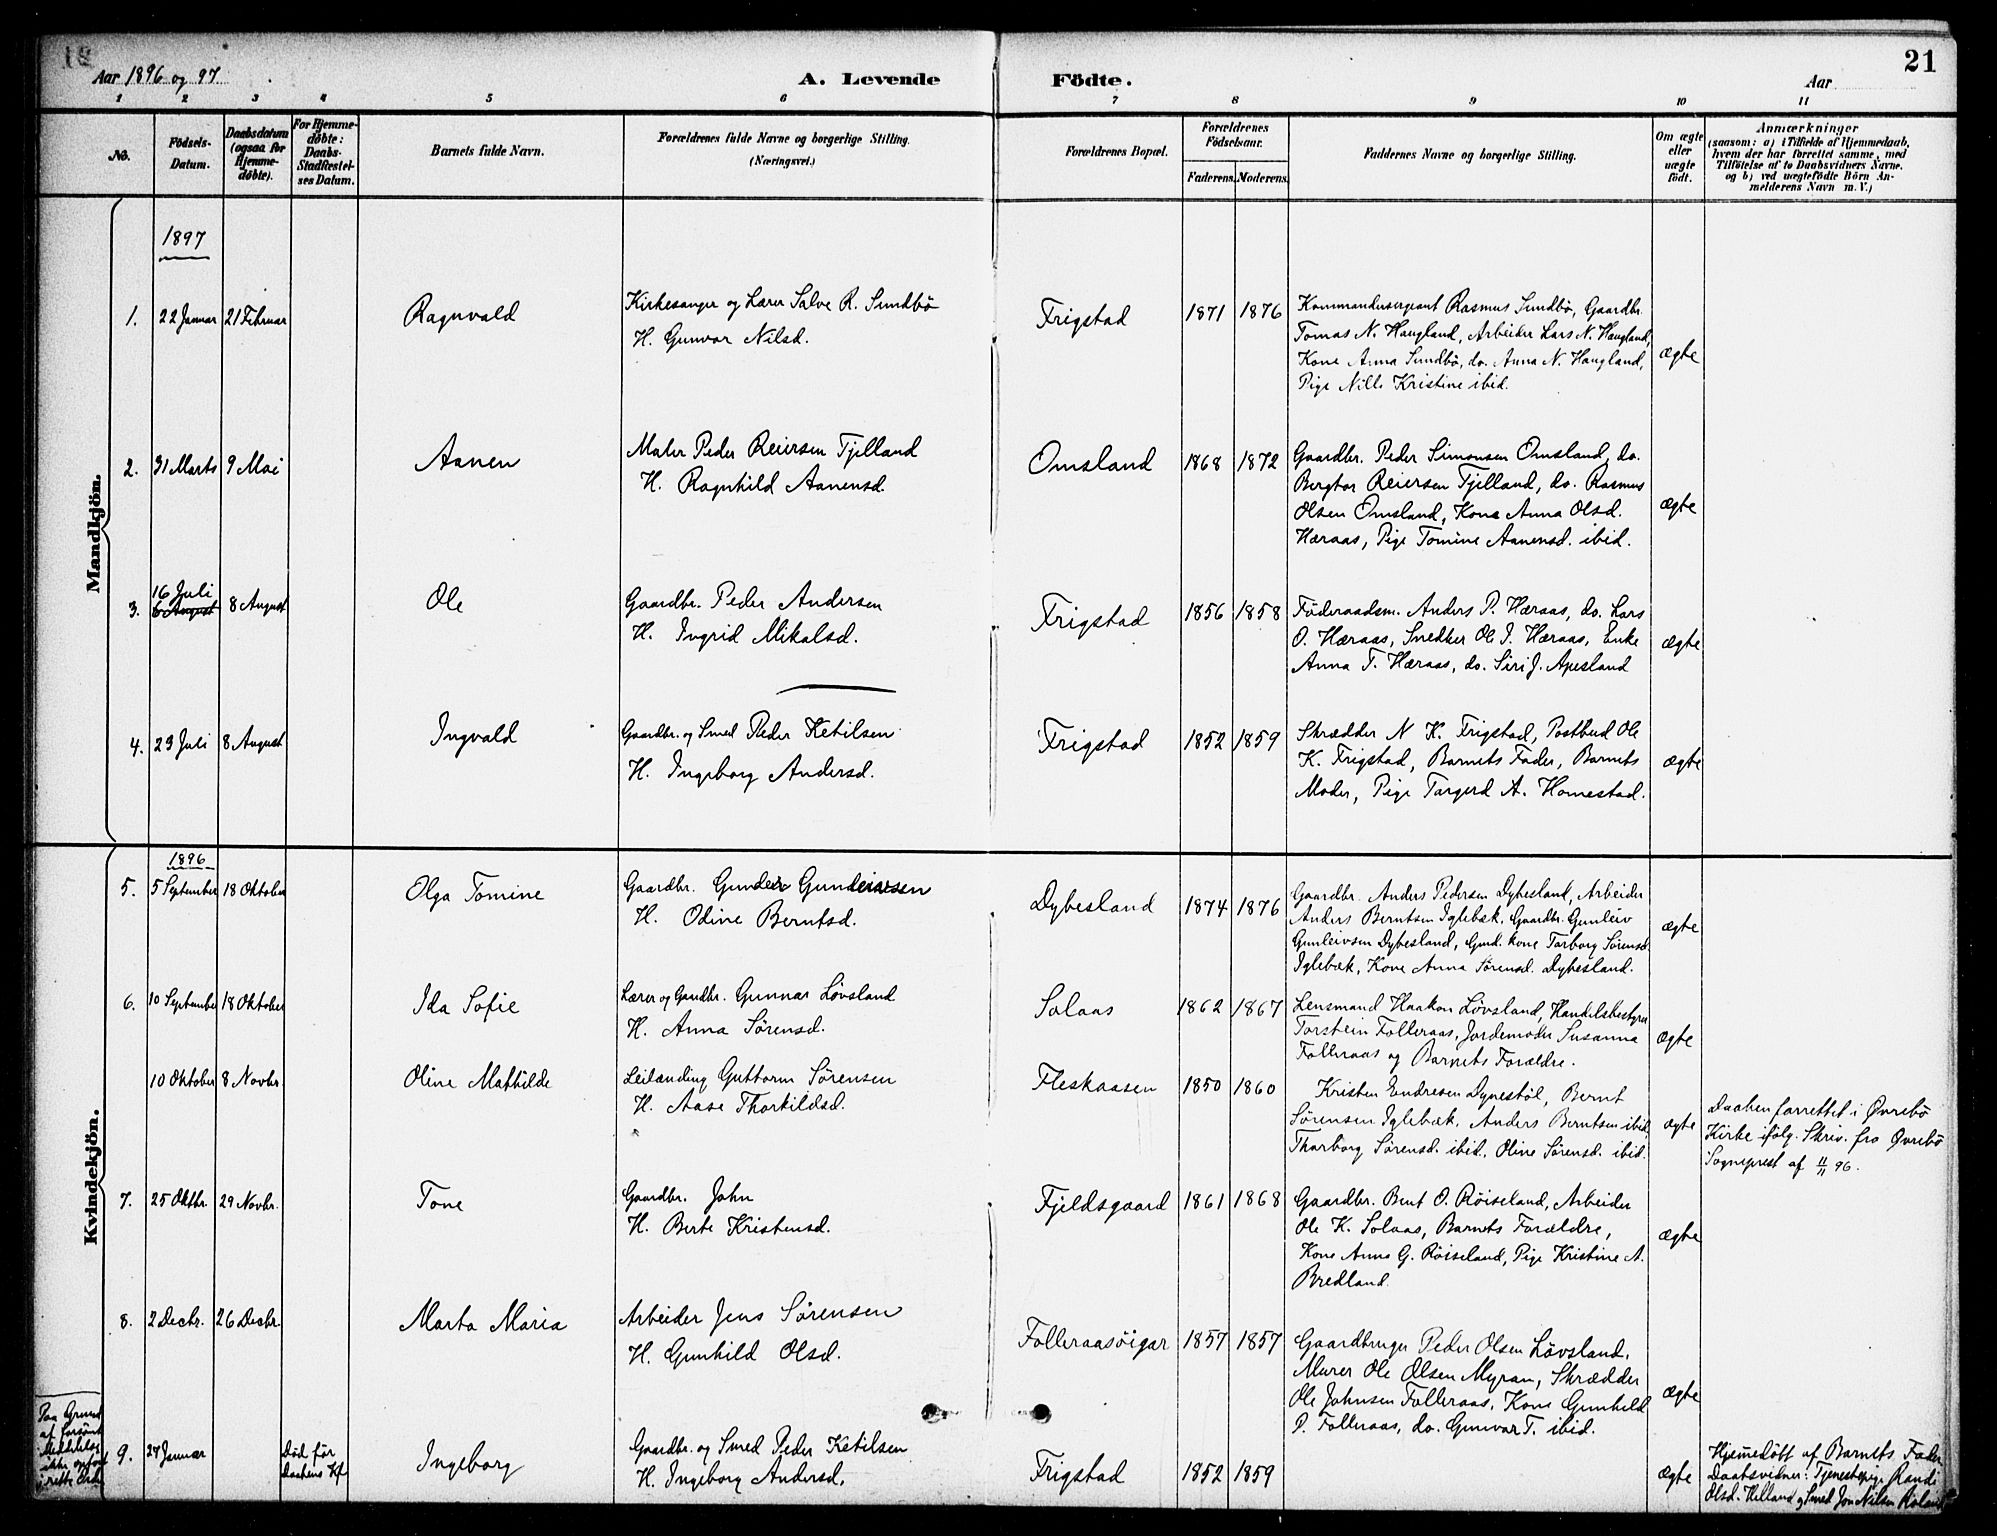 21
Aar 1896 og 97.
A. Levende Födte.
Aar
1 2 3 4 5 6 7 8 9 10 11
No.
Födsels-Datum.
Daabsdatum (ogsaa for Hjemme-döbte).
For Hjemme-döbte: Daabs-Stadfæstel-ses Datum.
Barnets fulde Navn.
Forældrenes fulde Navne og borgerlige Stilling.
(Næringsvei.)
Forældrenes Bopæl.
Forældrenes Födselsaar.
Faderens. Moderens.
Faddernes Navne og borgerlige Stilling.
Om ægte eller uægte födt.
Anmærkninger
(saasom: a) i Tilfælde af Hjemmedaab,
hvem der har forrettet samme, med
Tilföielse af to Daabsvidners Navne.
og b) ved uægtefödte Börn An-
melderens Navn m. V.)
Mandkjön.
1897
1. 22 Januar 21 Februar Ragnvald
Kirkesanger og Lærer Salve R. Sundbö
H. Gunvor Nilsd.
Frigstad 1871 1876
Kommandersergeant Rasmus Sundbö, Gaardbr.
Tomas N. Haugland, Arbeider Lars N. Haugland,
Kone Anna Sundbö, do. Anna N. Haugland,
Pige Nille Kristine ibid.
ægte
2. 31 Marts 9 Mai Aanen
Maler Peder Reiersen Tjelland
H. Ragnhild Aanensd.
Omsland 1868 1872
Gaardbr. Peder Simonsen Omsland, do.
Bergtor Reiersen Tjelland, do. Rasmus
Olsen Omsland, Kone Anna Olsd.
Hæraas, Pige Tomine Aanensd. ibid.
ægte
3. 16 Juli
6 August 8 August Ole
Gaardbr. Peder Andersen
H. Ingrid Mikalsd.
Frigstad 1856 1858
Föderaadsm. Anders P. Hæraas, do. Lars
O. Hæraas, Snedker Ole J. Hæraas, Enke
Anna T. Hæraas, do. Siri J. Apesland
ægte
4. 23 Juli 8 August Ingvald
Gaardbr. og Smed Peder Ketilsen
H. Ingeborg Andersd.
Frigstad 1852 1859
Skrædder N K. Frigstad, Postbud Ole
K. Frigstad, Barnets Fader, Barnets
Moder, Pige Targerd A. Homestad.
ægte
Kvindekjön.
1896
5. 5 September 18 Oktober Olga Tomine
Gaardbr. Gunder
H. Odine Berntsd.
Dybesland 1874 1876
Gaardbr. Anders Pedersen Dybesland, Arbeider
Anders Berntsen Iglebæk, Gaardbr. Gunleiv
Gunleivsen Dybesland, Gmd. kone Torborg Sörensd.
Iglebæk, Kone Anna Sörensd. Dybesland.
ægte
6. 10 September 18 Oktober Ida Sofie
Lærer og Gaardbr. Gunnar Lövsland
H. Anna Sörensd.
Solaas 1862 1867
Lensmand Haakon Lövsland, Handelsbestyrer
Torstein Folleraas, Jordemoder Susanna
Folleraas og Barnets Forældre.
ægte
10 Oktober 8 Novbr. Oline Mathilde
Leilænding Guttorm Sörensen
H. Aase Thorkildsd.
Fleskaasen 1850 1860
Kristen Endresen Dynestöl, Bernt
Sörensen Iglebæk, Anders Berntsen ibid,
Thorborg Sörensd. ibid, Oline Sörensd. ibid.
ægte
Daaben forrettet i Øvrebö
Kirke ifölg. Skriv. fra Øvrebö
Sogneprest af 11/11 96.
7. 25 Oktbr. 29 Novbr. Tone
Gaardbr. John
H. Berte Kristensd.
Fjeldsgaard 1861 1868
Gaardbr. Bent O. Röiseland, Arbeider
Ole K. Solaas, Barnets Forældre,
Kone Anna G. Röiseland, Pige Kristine A.
Bredland.
ægte
8. 2 Decbr. 26 Decbr. Marta Maria
Arbeider Jens Sörensen
H. Gunhild Olsd.
Folleraasöigar 1857 1857
Gaardbruger Peder Olsen Lövsland,
Murer Ole Olsen Myran, Skrædder
Ole Johnsen Folleraas, Kone Gunhild
P. Folleraas, do. Gunvor T. ibid.
ægte
Paa Grund
af forsömt
Meddelelse
ikke opfört
i rette Orden
9. 24 Januar
Död för
Daabens
Ingeborg
Gaardbr. og Smed Peder Ketilsen
H. Ingeborg Andersd.
Frigstad 1852 1859
ægte
Hjemedöbt af Barnets Fader
Daabsvidner: Tjenestepige Randi
Olsd. Helland og Smed Jon Nilsen